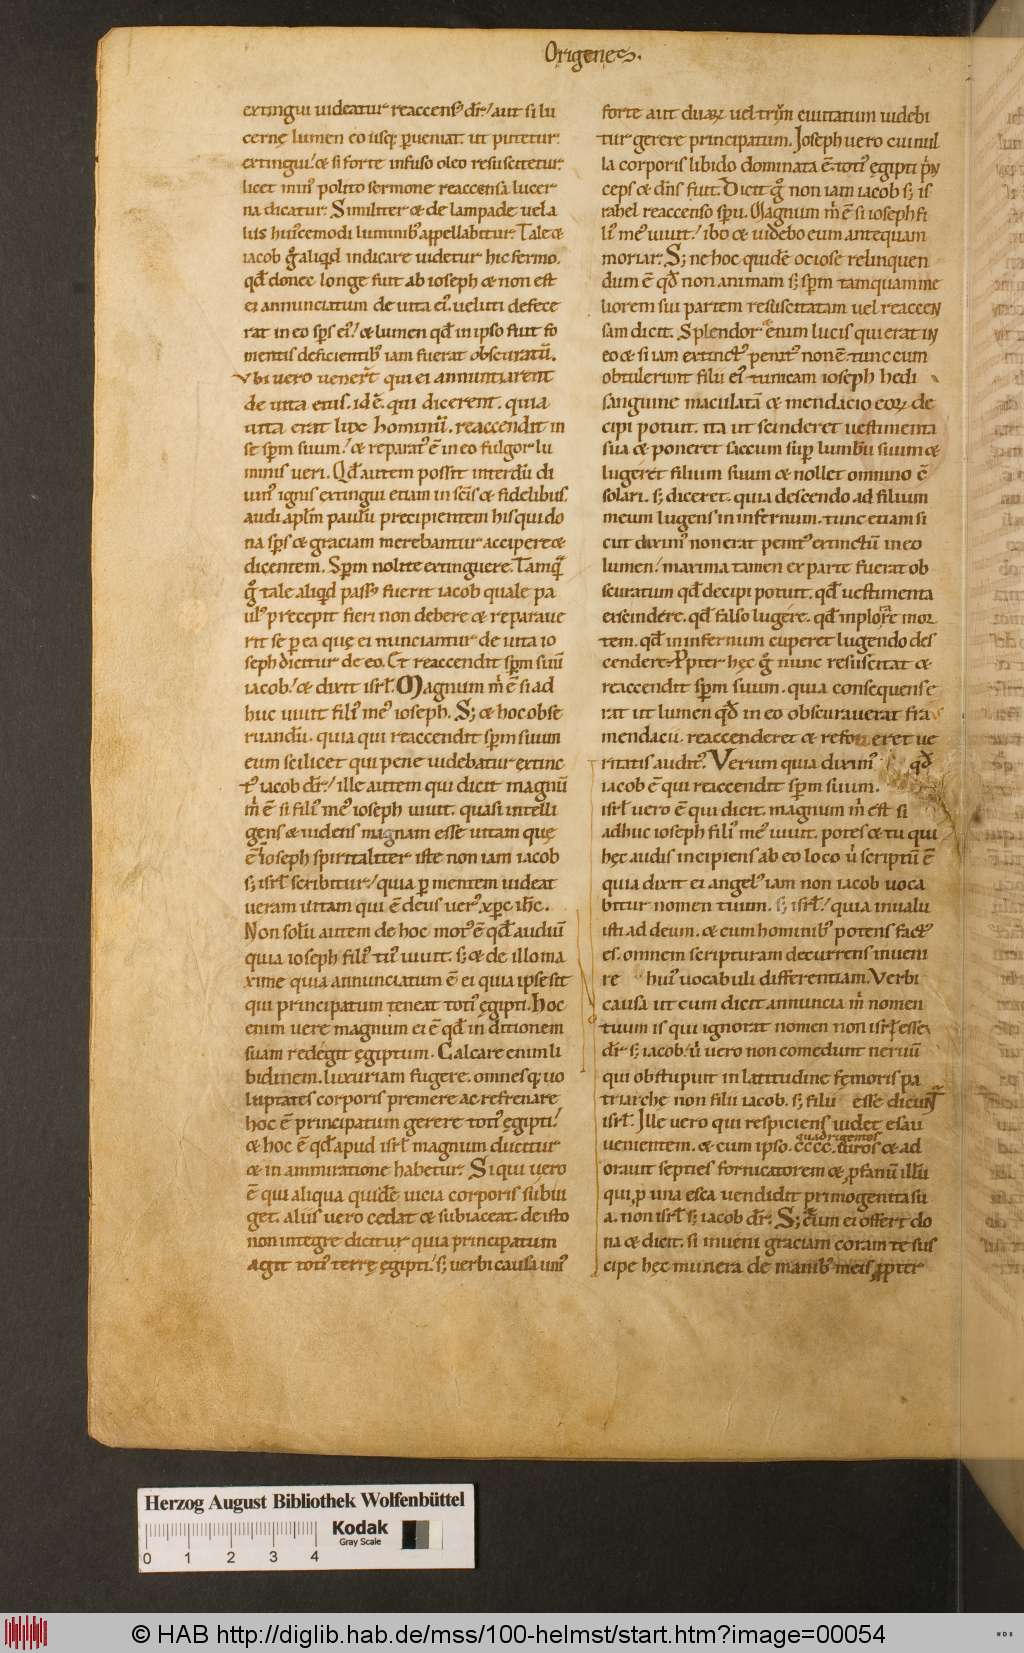 Origenes.
extingui uideatur reaccensꝰ dr̄/ aut si lu
cernę lumen eo usqꝫ ꝑueniat. ut putetur
extingui/ & si forte infuso oleo resuscitetur.
licet minꝰ polito sermone reaccensa lucer
na dicatur. Similiter & de lampade uel a
liis huiꝰcemodi luminibꝰ appellabitur. Tale &
iacob gͦ aliqid indicare uidetur hic sermo.
qd̄ donec longe fuit ab ioseph & non est
ei annunciatum de uita eiꝰ. ueluti defece
rat in eo sp̄s eiꝰ/ & lumen qd̄ in ipso fuit fo
mentis deficientibꝰ iam fuerat obscuratū.
Vbi uero uener̄t qui ei annuntiarent
de uita eius. id ē. qui dicerent. quia
uita erat lux hominū. reaccendit in
se sp̄m suum/ & reparatꝰ ē in eo fulgor lu
minis ueri. Qd̄ autem possit interdū di
uinꝰ ignis extingui etiam in sc̄is & fidelibus.
audi apl̄m paulū precipientem his qui do
na sp̄s & graciam merebantur accipere &
dicentem. Sp̄m nolite extinguere. Tamq̄
gͦ tale aliqid passꝰ fuerit iacob quale pa
ulꝰ precepit fieri non debere & reparaue
rit se ꝑ ea quę ei nunciantur de uita io
seph dicitur de eo. Et reaccendit sp̄m suū
iacob/ & dixit isrl̄. Magnum m̄ ē si ad
huc uiuit filiꝰ meꝰ ioseph. S; & hoc obse
ruandū. quia qui reaccendit sp̄m suum
eum scilicet qui pene uidebatur extinc
tꝰ iacob dr̄/ ille autem qui dicit magnū
m̄ ē si filiꝰ meꝰ ioseph uiuit. quasi intelli
gens & uidens magnam esse uitam quę
ē ī ioseph spiritaliter iste non iam iacob
s; isrl̄ scribitur/ quia ꝑ mentem uideat
ueram uitam qui ē deus uerꝰ xp̄c ih̄c.
Non solū autem de hoc motꝰ ē qd̄ audiuit
quia ioseph filiꝰ tuꝰ uiuit. s; & de illo ma
xime quia annunciatum ē ei quia ipse sit
qui principatum teneat totiꝰ ęgipti. Hoc
enim uere magnum ei ē qd̄ in ditionem
suam redegit ęgiptum. Calcare enim li
bidinem. luxuriam fugere. omnesqꝫ uo
luptates corporis premere ac refrenare
hoc ē principatum gerere totiꝰ ęgipti/
& hoc ē qd̄ apud isrl̄ magnum ducitur
& in ammiratione habetur. Si qui uero
ē qui aliqua quidē uicia corporis subiu
get. aliis uero cedat & subiaceat. de isto
non integre dicitur quia principatum
agit totiꝰ terrę ęgipti/ s; uerbi causa uniꝰ
forte aut duaꝝ uel triū ciuitatum uidebi
tur gerere principatum. Ioseph uero cui nul
la corporis libido dominata ē. totiꝰ ęgipti pͥn
ceps & dn̄s fuit. Dicit gͦ non iam iacob s; is
rahel reaccenso sp̄u. Magnum m̄ ē si ioseph fi
liꝰ meꝰ uiuit/ ibo & uidebo eum antequam
moriar. S; ne hoc quidē ociose relinquen
dum ē qd̄ non animam s; sp̄m tamquam me
liorem sui partem resuscitatam uel reaccen
sam dicit. Splendor enim lucis qui erat in
eo & si iam extinctꝰ penitꝰ non ē. tunc cum
obtulerunt filii eiꝰ tunicam ioseph hedi
sanguine maculatā & mendacio eoꝝ de
cipi potuit. ita ut scinderet uestimenta
sua & poneret saccum suꝑ lumbū suum &
lugeret filium suum & nollet omnino c̄
solari. s; diceret. quia descendo ad filium
meum lugens in infernum. tunc etiam si
cut diximꝰ non erat penitꝰ extinctū in eo
lumen/ maxima tamen ex parte fuerat ob
scuratum qd̄ decipi potuit. qd̄ uestimenta
exscindere. qd̄ falso lugere. qd̄ inplorare mor
tem. qd̄ in infernum cuperet lugendo des
cendere. Ꝓpter hęc gͦ nunc resuscitat &
reaccendit sp̄m suum. quia consequens e
rat ut lumen qd̄ in eo obscurauerat fra
mendacii. reaccenderet & refoueret ue
ritatis auditꝰ. Verum quia diximꝰ qd̄
iacob ē qui reaccendit sp̄m suum.
isrl̄ uero ē qui dicit. magnum m̄ est si
adhuc ioseph filiꝰ meꝰ uiuit. potes & tu qui
hęc audis incipiens ab eo loco ū scriptū ē
quia dixit ei angelꝰ iam non iacob uoca
bitur nomen tuum. s; isrl̄/ quia inualu
isti ad deum. & cum hominibꝰ potens factꝰ
es. omnem scripturam decurrens inueni
re huiꝰ uocabuli differentiam. Verbi
causa ut cum dicit annuncia m̄ nomen
tuum is qui ignorat nomen non isrl̄ esse
dr̄ s; iacob/ ū vero non comedunt neruū
qui obstupuit in latitudine fęmoris pa
triarchę non filii iacob. s; filii esse dicunt̄
isrl̄. Ille uero qui respiciens uidet esau
uenientem. & cum ipso
quadrigentos
cccc. uiros & ad
orauit septies fornicatorem & ꝓfanū illū
qui ꝑ una esca uendidit primogenita su
a. non isrl̄ s; iacob dr̄. S; cum ei offert do
na & dicit. si inueni graciam coram te sus
cipe hęc munera de manibꝰ meis ꝓpter
Herzog August Bibliothek Wolfenbüttel
0 1 2 3 4
Kodak
Gray Scale
© HAB http://diglib.hab.de/mss/100-helmst/start.htm?image=00054